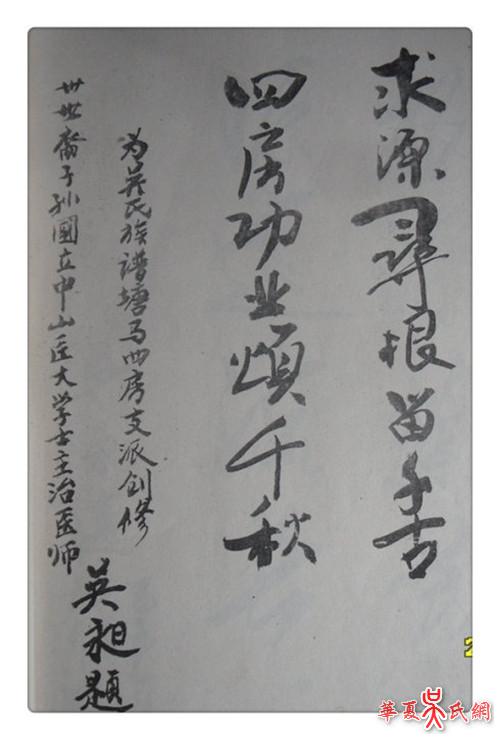 求源尋根留千古
四房功业頌千秋
为吴氏族谱塘马四房支派创修
卅世裔子孙國立中山医大学士主治医师
吴昶題
華夏吴氏網